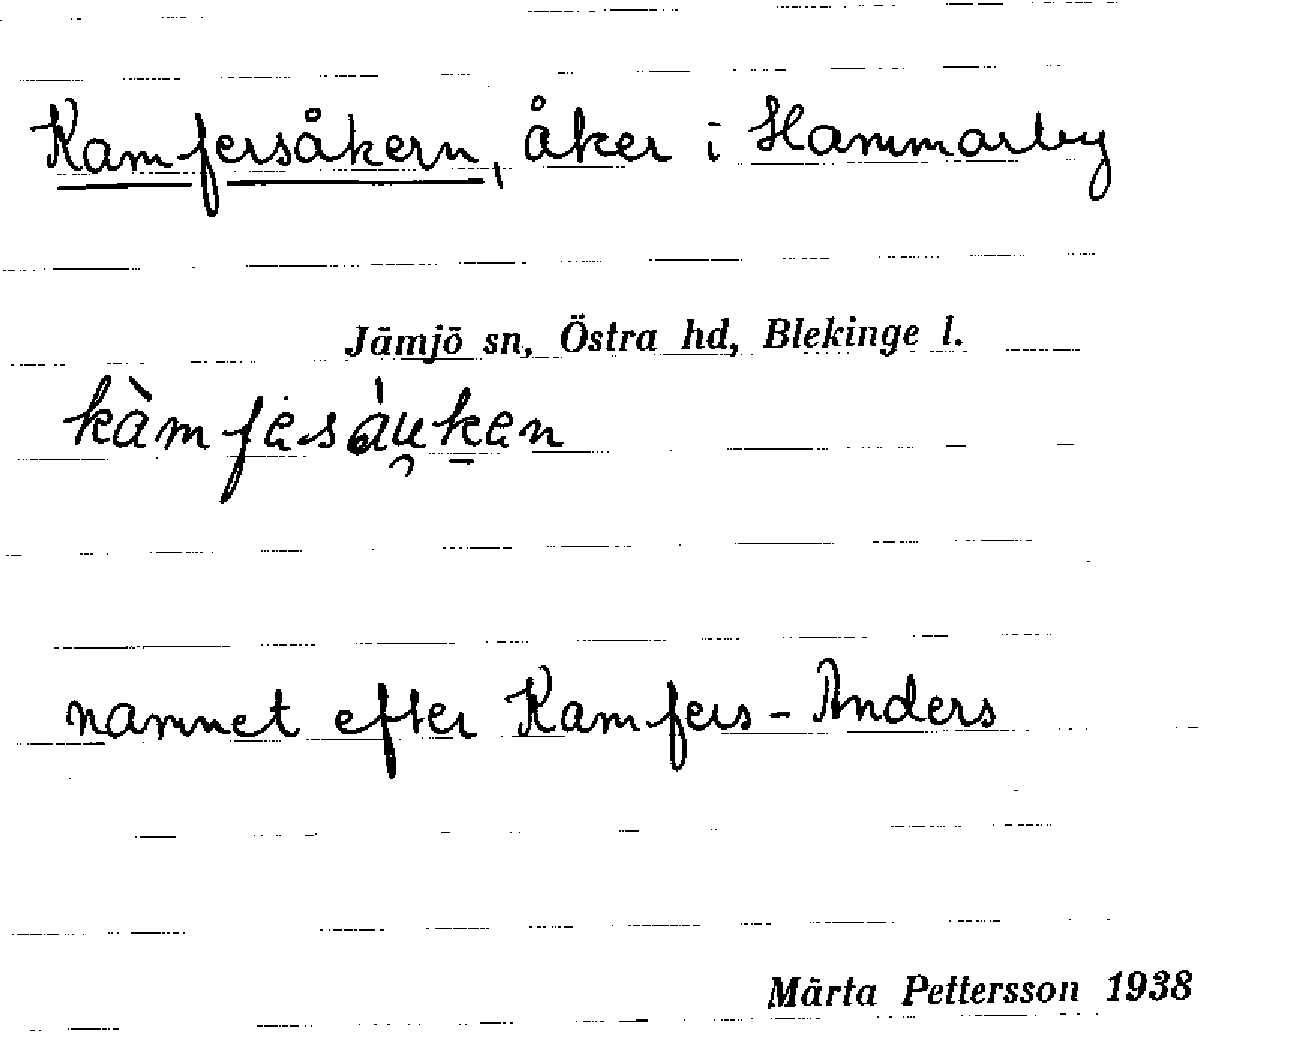 Kamfersåkern, åker i Hammarby
Jämjö sn, Östra hd, Blekinge l.
kàmfesàu̯ken
namnet efter Kamfers-Anders
Märta Pettersson 1938